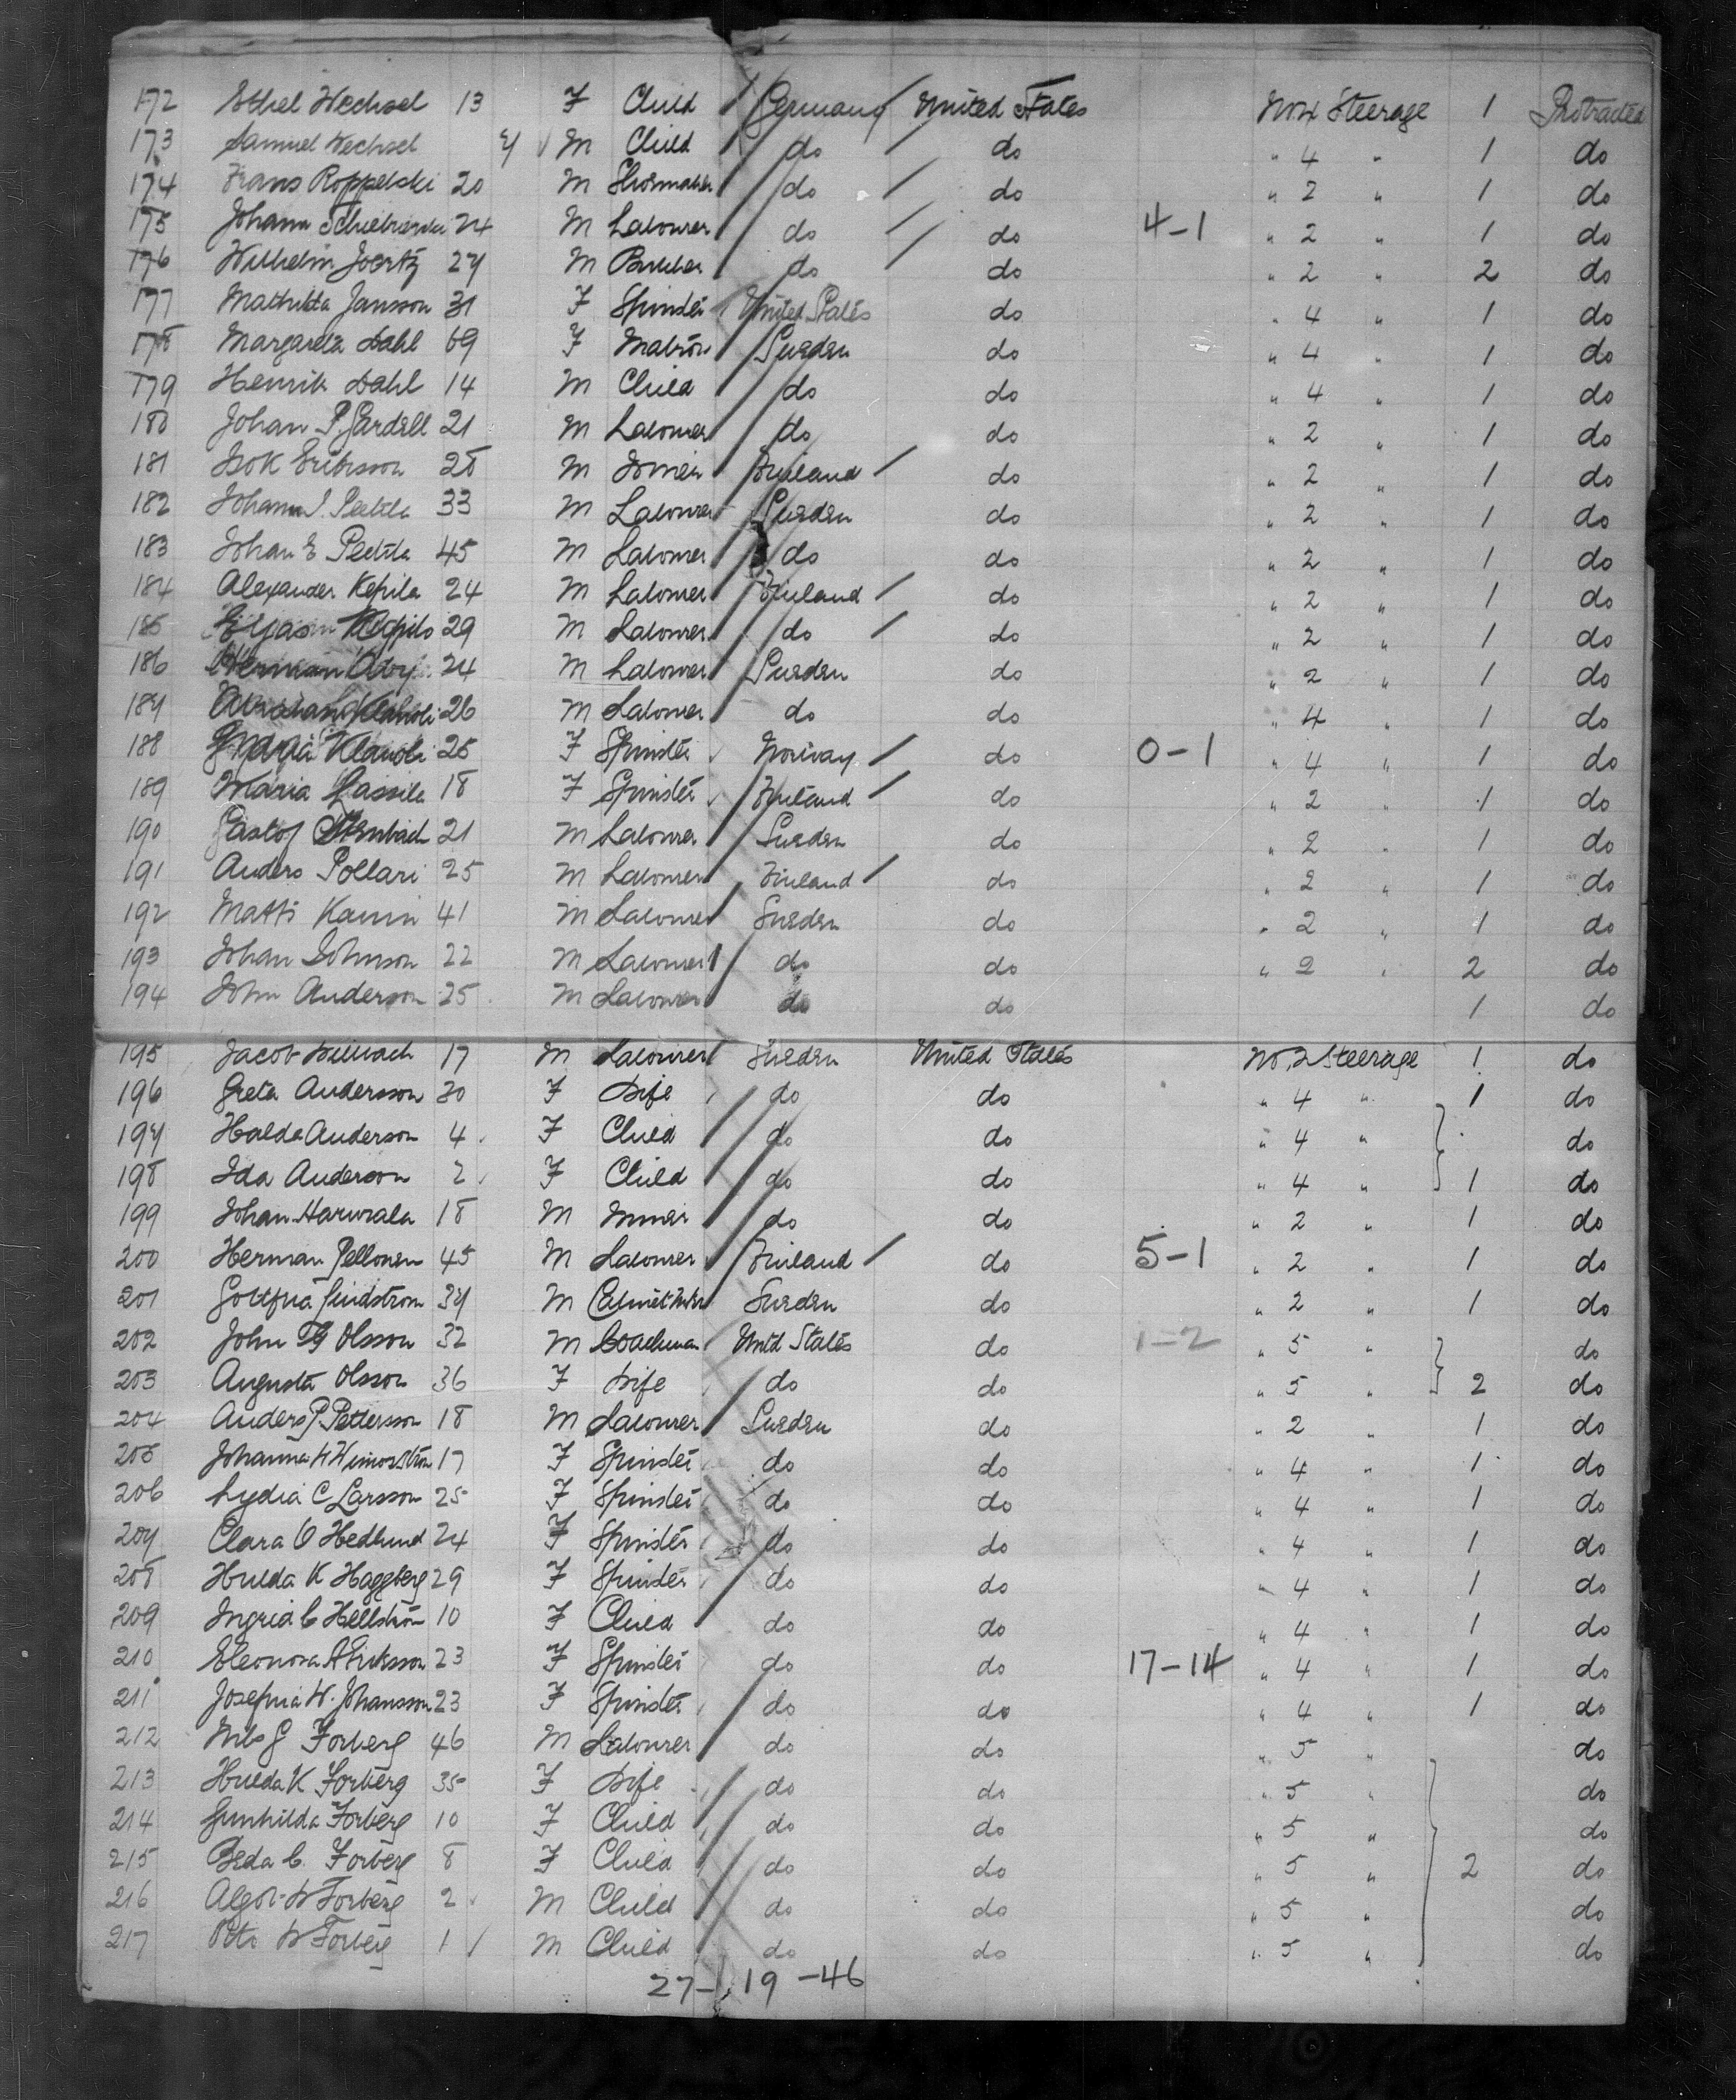 172 Ethel Wechsel 13 F Child Germany United States No 4 Steerage 1 Protracted
173 Samuel Wechsel 7 M Child do do " 4 " 1 do
174 Frans Roppelski 20 M Shoemaker do do " 2 " 1 do
175 Johann 24 M Labourer do do 4-1 " 2 " 1 do
176 Wilhelm Joertz 27 M do do " 2 " 2 do
177 Mathilda Jansson 31 F Spinster United States do " 4 " 1 do
178 Margareta Dahl 69 F Matron Sweden do " 4 " 1 do
179 Henrik Dahl 14 M Child do do " 4 " 1 do
180 Johan P. Gardell 21 M Labourer do do " 2 " 1 do
181 Isok Eriksson 28 M Finland do " 2 " 1 do
182 Johann I. 33 M Labourer Sweden do " 2 " 1 do
183 Johan E 45 M Labourer do do " 2 " 1 do
184 Alexander Kepila 24 M Labourer Finland do " 2 " 1 do
185 29 M Labourer do do " 2 " 1 do
186 Herman 24 M Labourer Sweden do " 2 " 1 do
187 26 M Labourer do do " 4 " 1 do
188 25 F Spinster Norway do 0-1 " 4 " 1 do
189 Maria 18 F Spinster Finland do " 2 " 1 do
190 21 M Labourer Sweden do " 2 " 1 do
191 Anders Pollari 25 M Labourer Finland do " 2 " 1 do
192 Matti 41 M Labourer Sweden do " 2 " 1 do
193 Johan Johnson 22 M Labourer do do " 2 " 2 do
194 John Anderson 25 M Labourer do do 1 do
195 Jacob 17 M Labourer Sweden United States No. 2 Steerage 1 do
196 Greta Andersson 30 F Wife do do " 4 " 1 do
197 Halda Anderson 4 F Child do do " 4 " do
198 Ida Anderson 2 F Child do do " 4 " 1 do
199 Johan 18 M Miner do do " 2 " 1 do
200 Herman Pellonen 45 M Labourer Finland do 5-1 " 2 " 1 do
201 Lindstrom 37 M Sweden do " 2 " 1 do
202 John G Olsson 32 M Coachman United States do 1-2 " 5 " do
203 Augusta Olsson 36 F Wife do do " 5 " 2 do
204 Anders P. Pettersson 18 M Labourer Sweden do " 2 " 1 do
205 Johanna 17 F Spinster do do " 4 " 1 do
206 Lydia C Larsson 25 F Spinster do do " 4 " 1 do
207 Clara O Hedlund 24 F Spinster do do " 4 " 1 do
208 Hulda K Haggberg 29 F Spinster do do " 4 " 1 do
209 Ingrid C Hellström 10 F Child do do " 4 " 1 do
210 Eleonora A Eriksson 23 F Spinster do do 17-14 " 4 " 1 do
211 Josefina W. Johansson 23 F Spinster do do " 4 " 1 do
212 Nils G Forberg 46 M Labourer do do " 5 " do
213 Hulda K Forberg 35 F Wife do do " 5 " do
214 Gunhilda Forberg 10 F Child do do " 5 " do
215 Beda C. Forberg 8 F Child do do " 5 " 2 do
216 Algot W Forberg 2 M Child do do " 5 " do
217 W Forberg 1 M Child do do " 5 " do
27- 19 -46